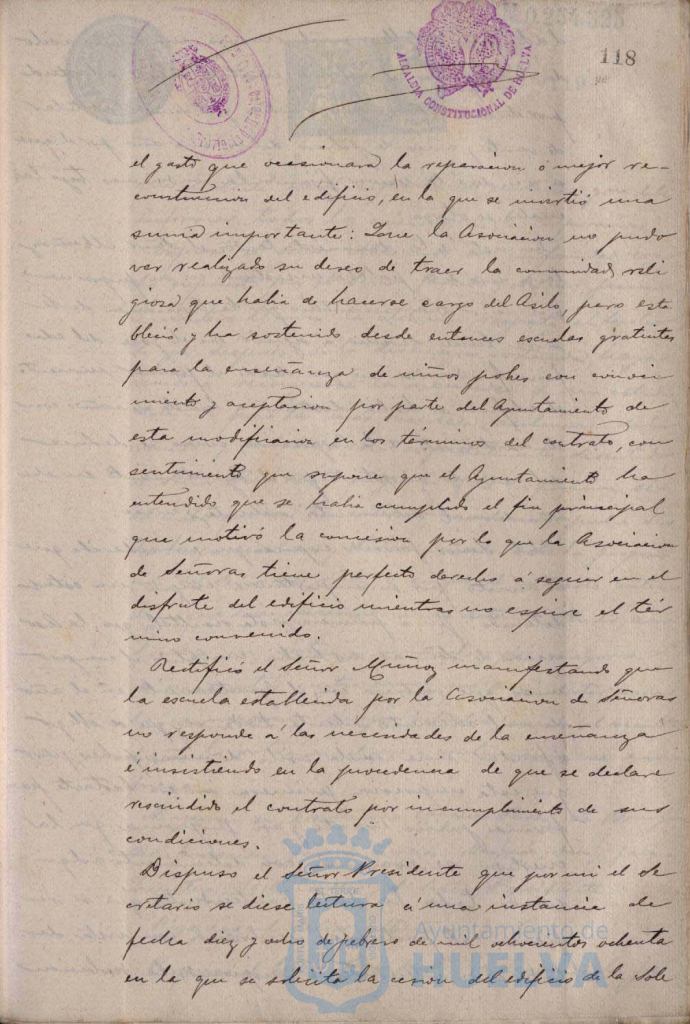 0.234.325
118
ALCALDIA CONSTITUCIONAL DE HUELVA
el gasto que ocasionara la reparacion o mejor re-
construccion del edificio, en la que se invirtió una
suma importante: Que la Asociacion no pudo
ver realizado su deseo de traer la comunidad reli
giosa que habia de hacerse cargo del Asilo, pero esta
bleció y ha sostenido desde entonces escuelas gratuitas
para la enseñanza de niños pobres con conoci
miento y aceptacion por parte del Ayuntamiento de
esta modificacion en los términos del contrato, con
sentimiento que supone que el Ayuntamiento ha
entendido que se habia cumplido el fin principal
que motivó la concesion por lo que la Asociacion
de Señoras tiene perfecto derecho á seguir en el
disfrute del edificio mientras no espire el tér
mino convenido.
Rectificó el Señor Muñoz manifestando que
la escuela establecida por la Asociacion de Señoras
no responde á las necesidades de la enseñanza
é insistiendo en la procedencia de que se declare
rescindido el contrato por incumplimiento de sus
condiciones.
Dispuso el Señor Presidente que por mi el Se
cretario se diese lectura á una instancia de
fecha diez y ocho de febrero de mil ochocientos ochenta
en la que se solicita la cesion del edificio de la Sole
Ayuntamiento de
HUELVA